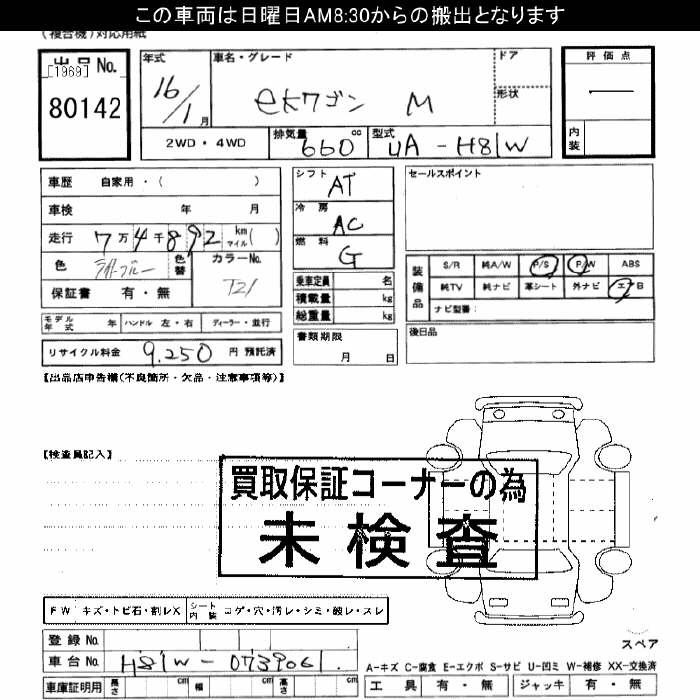 この車両は日曜日AM8:30からの搬出となります
(複合機)対応用紙
出品 No.
[1969]
80142
年式
16/1月
車名・グレード
ekワゴン M
ドア
形状
評価点
内装
2WD・4WD
排気量 660 cc
型式 UA-H81W
車歴 自家用・( )
車検 年 月
走行 7万4千892 km マイル( )
色 ライトブルー 色替
カラーNo. T21
保証書 有・無
シフト AT
冷房 AC
燃料 G
乗車定員 名
積載量 kg
総重量 kg
セールスポイント
装備品
S/R 純A/W P/S P/W ABS
純TV 純ナビ 革シート 外ナビ エアB
ナビ型番:
モデル年式 年 ハンドル 左・右 ディーラー・並行
書類期限
月 日
後日品
リサイクル料金 9,250 円 預託済
【出品店申告欄(不良箇所・欠品・注意事項等)】
【検査員記入】
買取保証コーナーの為
未検査
FW キズ・トビ石・割レX
シート内装 コゲ・穴・汚レ・シミ・破レ・スレ
登録 No.
車台 No. H81W-0739061
スペア
A-キズ C-腐食 E-エクボ S-サビ U-凹ミ W-補修 XX-交換済
車庫証明用 長さ cm 幅 cm 高さ cm
工具 有・無 ジャッキ 有・無